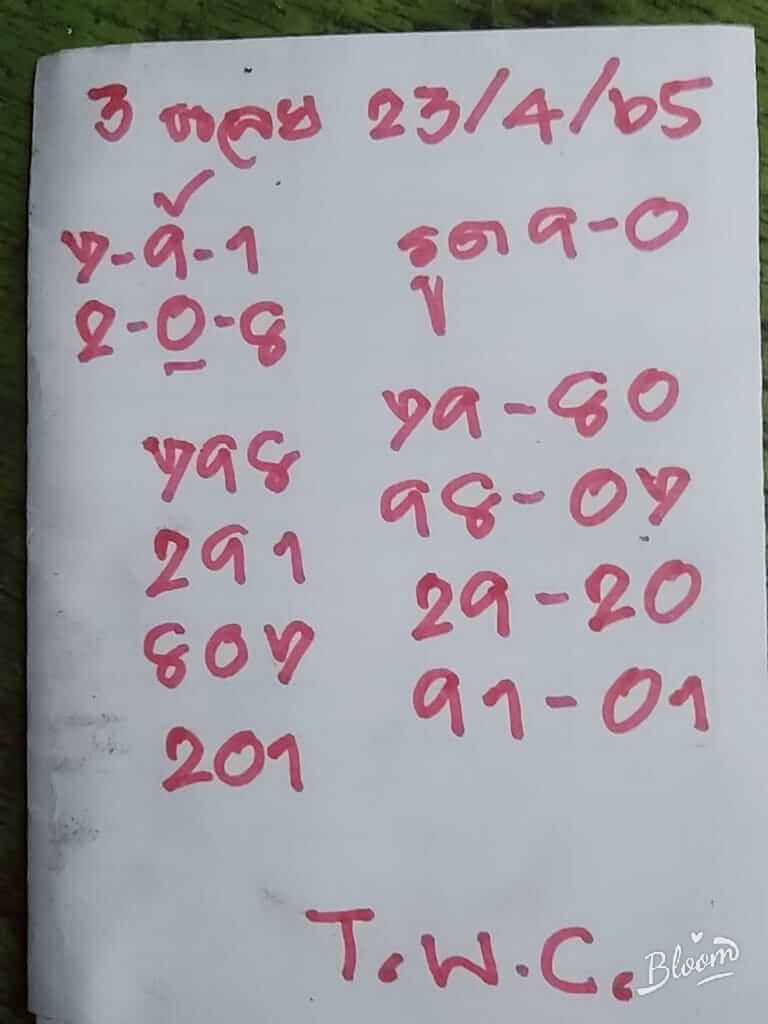 3 23/4/65
7-9-1
2-0-8
รูด 9-0
798
291
807
201
79-80
98-07
29-20
91-01
T.W.C.
Bloom